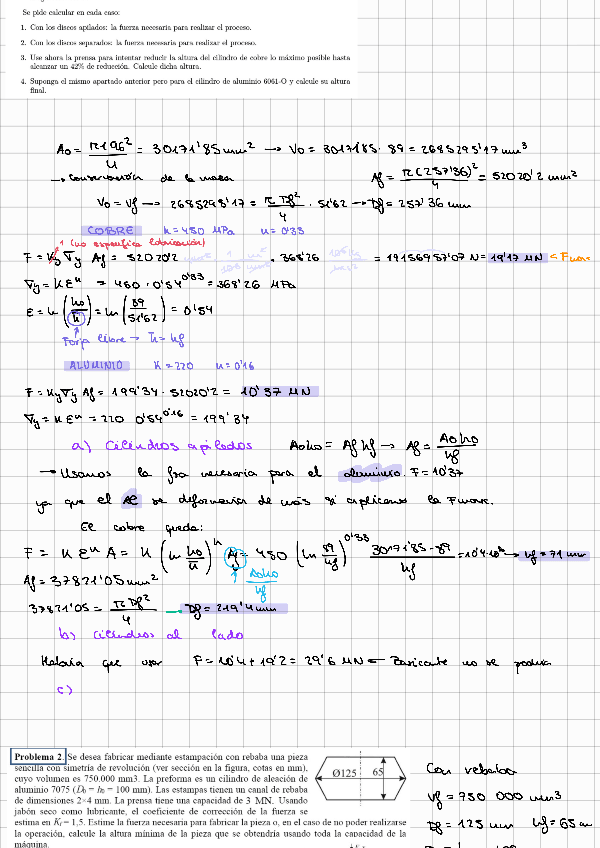 Se pide calcular en cada caso:
1. Con los discos apilados: la fuerza necesaria para realizar el proceso.
2. Con los discos separados: la fuerza necesaria para realizar el proceso.
3. Use ahora la prensa para intentar reducir la altura del cilindro de cobre lo máximo posible hasta
alcanzar un 42% de reducción. Calcule dicha altura.
4. Suponga el mismo apartado anterior pero para el cilindro de aluminio 6061-O y calcule su altura
final.
A₀ = π196²/4 = 30171'85 mm² → V₀ = 30171'85 · 89 = 2685295'17 mm³
→ Conservación de la masa
Af = π(257'36)²/4 = 52020'2 mm²
V₀ = Vf → 2685295'17 = π Df²/4 · 51'62 → Df = 257'36 mm
COBRE K = 450 MPa n = 0'33
1 (no especifica lubricación)
F = Kf ∇y Af = 52020'2 · 368'26 = 19156957'07 N = 19'17 MN ← Fmax
∇y = K εⁿ = 450 · 0'54^0'33 = 368'26 MPa
ε = ln (h₀/h) = ln (89/51'62) = 0'54
Forja libre → h = hf
ALUMINIO K = 220 n = 0'16
F = Kf ∇y Af = 199'34 · 52020'2 = 10'37 MN
∇y = K εⁿ = 220 0'54^0'16 = 199'34
a) Cilindros apilados A₀h₀ = Af hf → Af = A₀h₀/hf
→ Usamos la fza necesaria para el aluminio. F = 10'37
ya que el Al se deformaría de más si aplicamos la Fmax.
El cobre queda:
F = K εⁿ A = K (ln h₀/h)ⁿ Af = 450 (ln 89/hf)^0'33 30171'85·89/hf = 10'4·10⁶ → hf = 71 mm
Af = 37821'05 mm² A₀h₀/hf
37821'05 = π Df²/4 → Df = 219'4 mm
b) Cilindros al lado
Habría que usar F = 10'4 + 19'2 = 29'6 MN ← no se podría
c)
Problema 2. Se desea fabricar mediante estampación con rebaba una pieza
sencilla con simetría de revolución (ver sección en la figura, cotas en mm),
cuyo volumen es 750.000 mm3. La preforma es un cilindro de aleación de
aluminio 7075 (D₀ = h₀ = 100 mm). Las estampas tienen un canal de rebaba
de dimensiones 2×4 mm. La prensa tiene una capacidad de 3 MN. Usando
jabón seco como lubricante, el coeficiente de corrección de la fuerza se
estima en Kf = 1,5. Estime la fuerza necesaria para fabricar la pieza o, en el caso de no poder realizarse
la operación, calcule la altura mínima de la pieza que se obtendría usando toda la capacidad de la
máquina.
Ø125 65
Con rebaba
Vf = 750 000 mm3
Df = 125 mm hf = 65 m